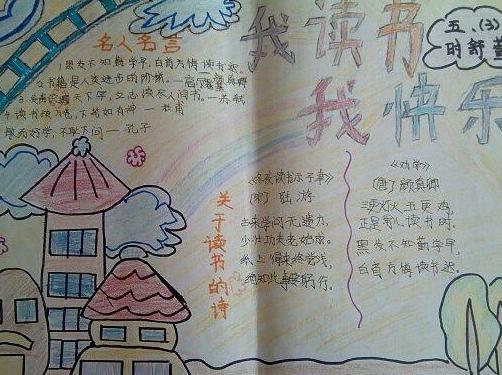 我读书
我快乐
五、(3)
时舒萱
名人名言
黑发不知勤学早,白首方悔读书迟。
2.书籍是人类进步的阶梯。—高尔基
3.发愤识遍天下字,立志读尽人间书。—苏轼
4.读书破万卷,下笔如有神—杜甫
敏而好学,不耻下问—孔子
关于读书的诗
《冬夜读书示子聿》
(宋) 陆游
古来学问无遗力,
少壮功夫老始成。
纸上得来终觉浅,
绝知此事要躬行。
《劝学》
(唐) 颜真卿
三更灯火五更鸡,
正是男儿读书时。
黑发不知勤学早,
白首方悔读书迟。